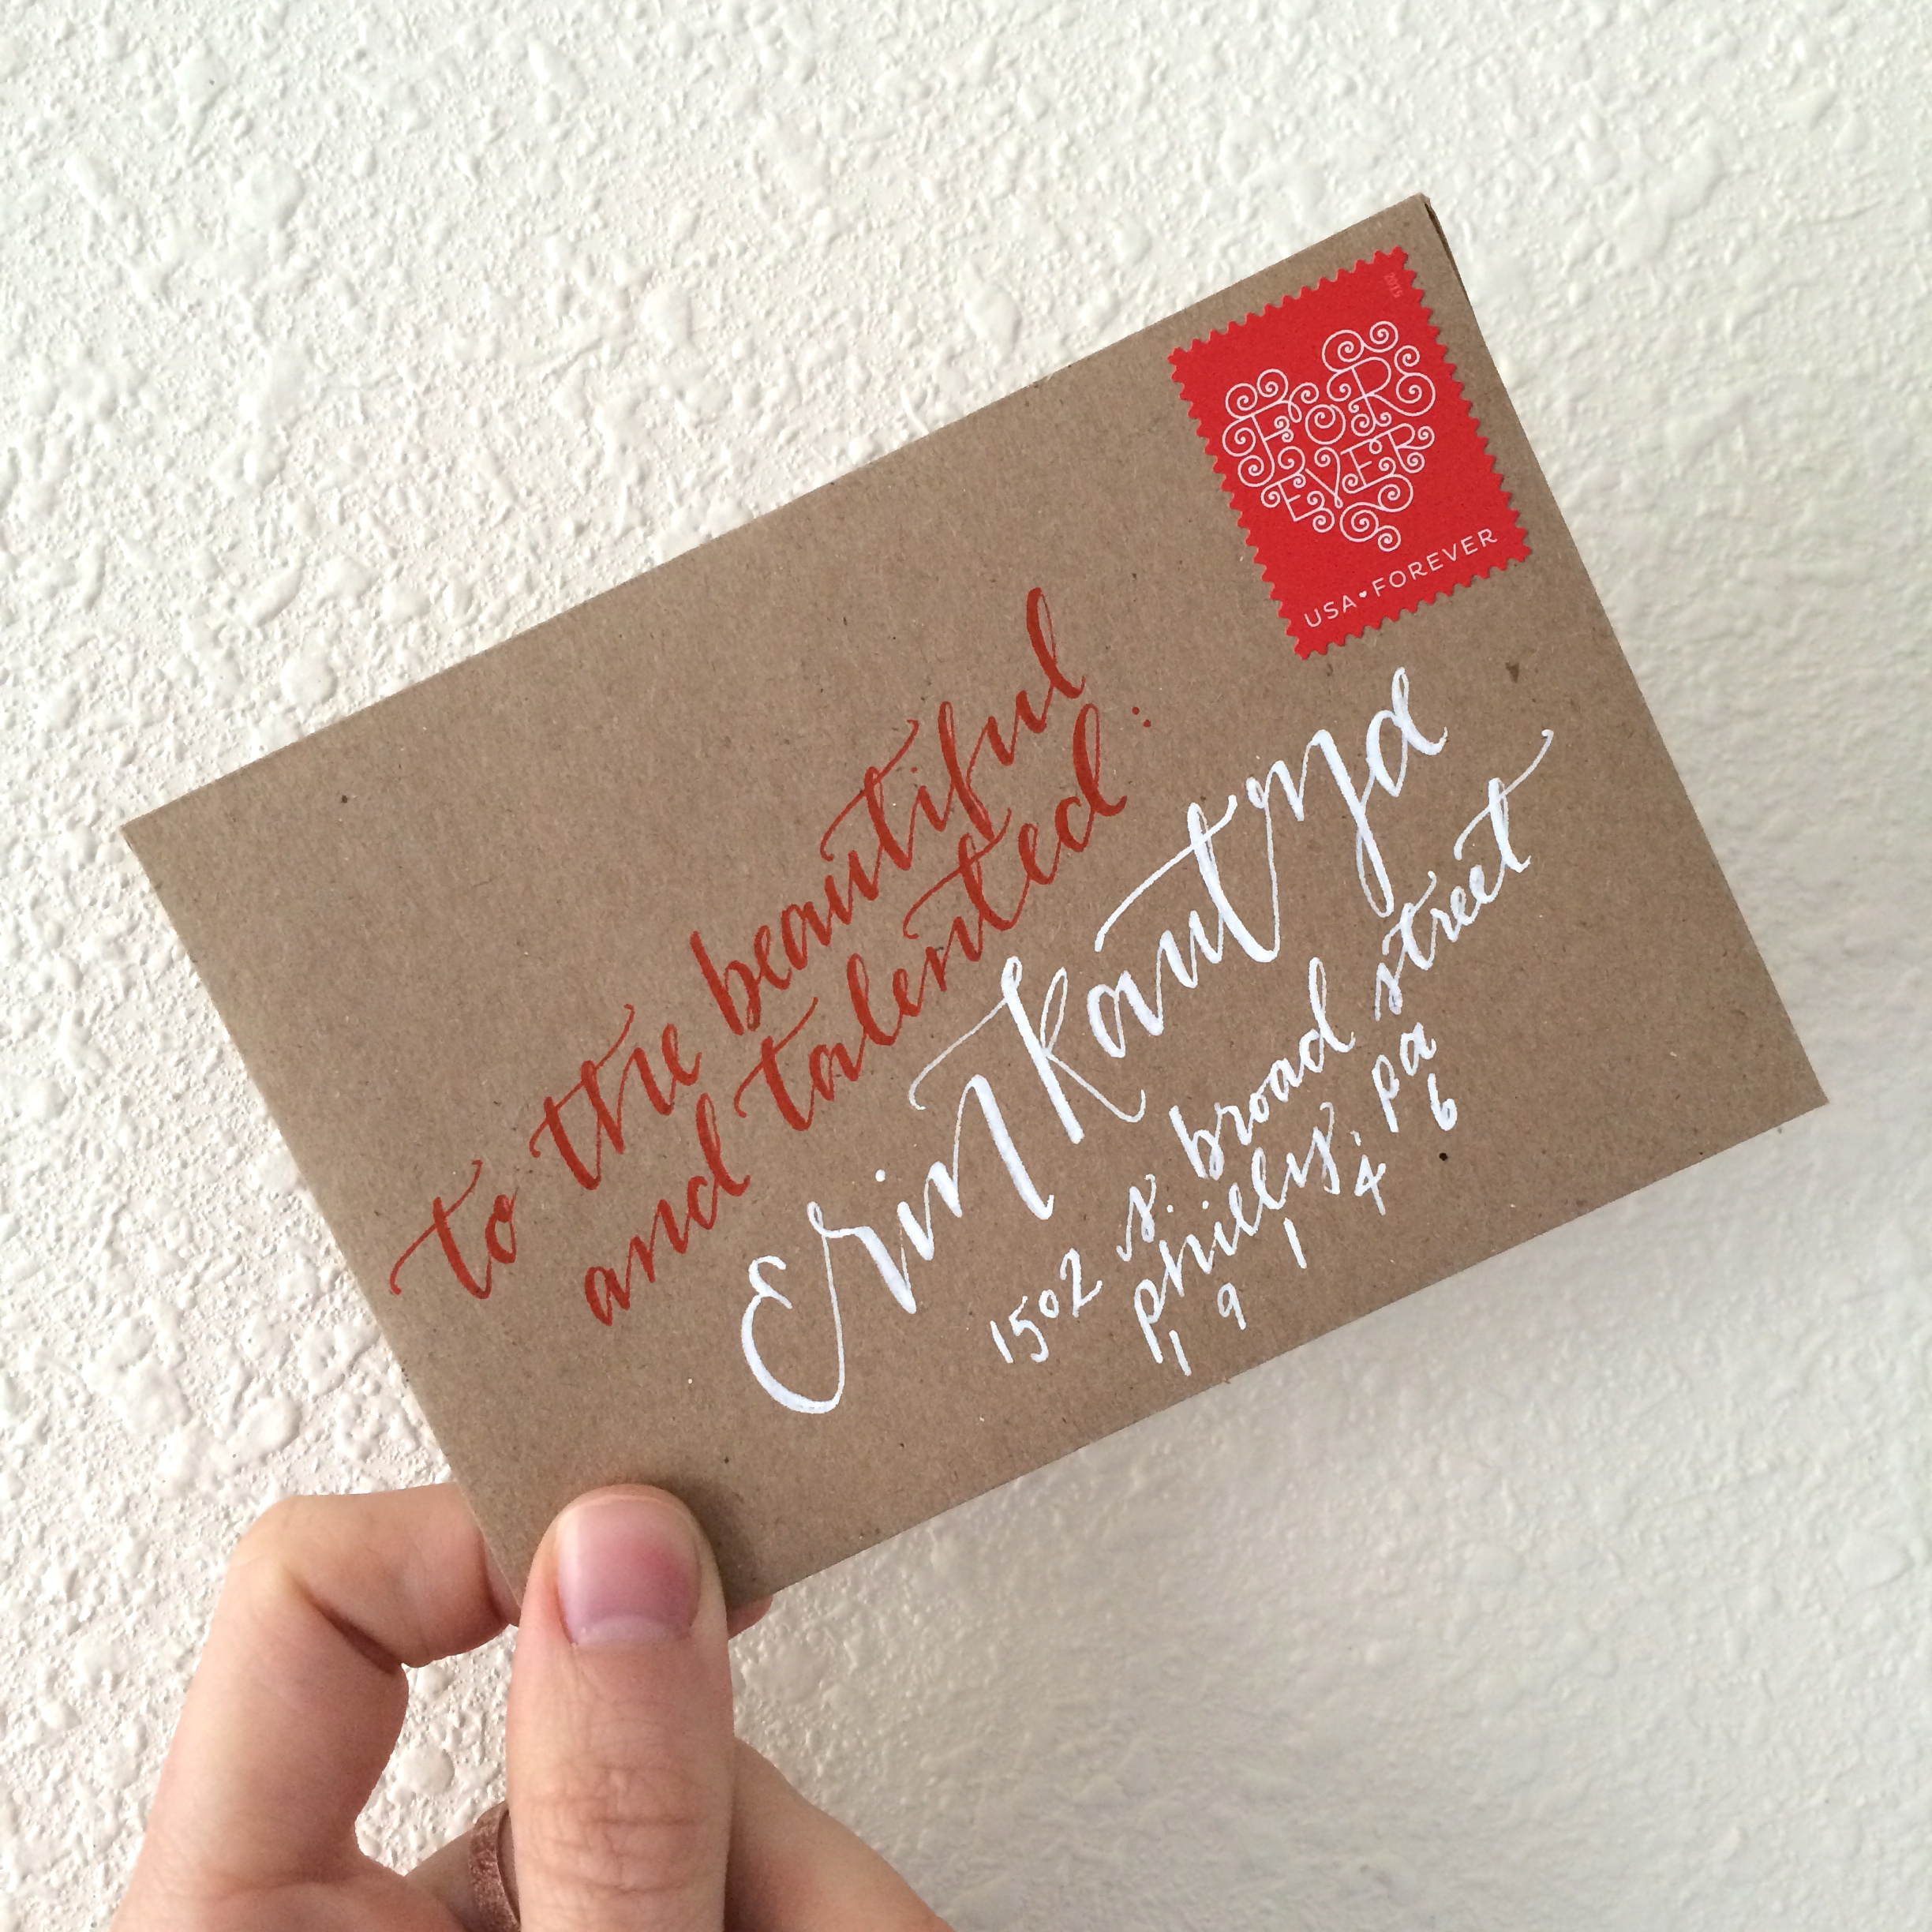 2015
FOR
EVER
USA♥FOREVER
to the beautiful
and talented:
Erin Kautza
1502 s. broad street
philly, pa
19146